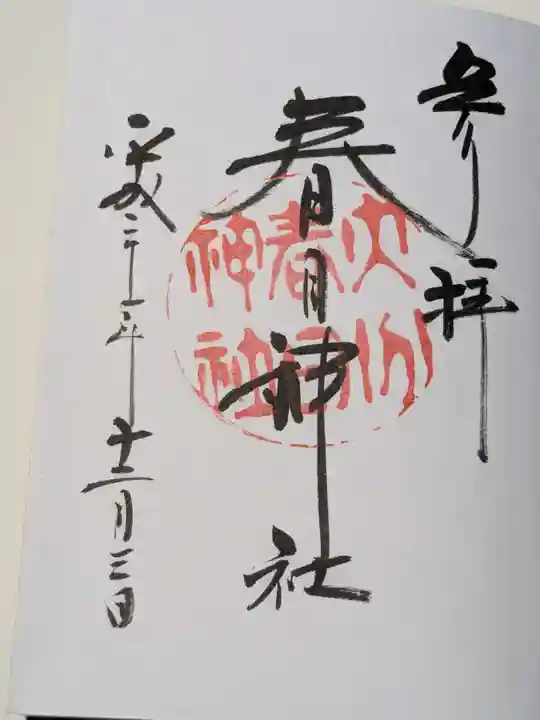 参拝
春日神社
大分
春日
神社
平成二十一年
十二月三日